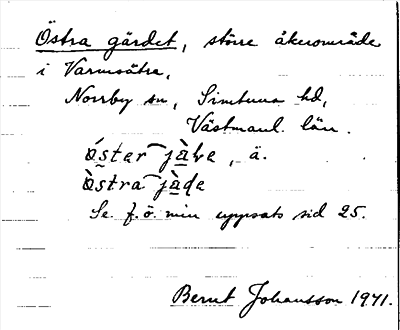 Östra gärdet, större åkerområde
i Varmsätra,
Norrby sn, Simtuna hd,
Västmanl. län.
öster jàḷe, ä.
ὸstra jàde
Se f. ö. min uppsats sid 25.
Bernt Johansson 1941.